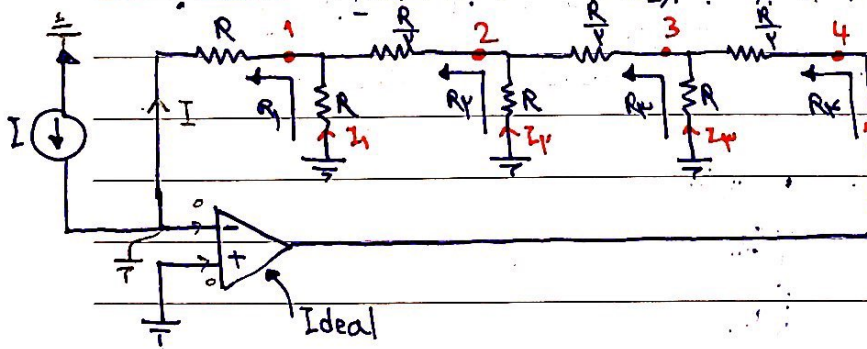 R 1 R/۲ 2 R/۲ 3 R/۲ 4
I I R۱ R I۱ R۲ R I۲ R۳ R I۳ R۴
0 -
0 +
Ideal